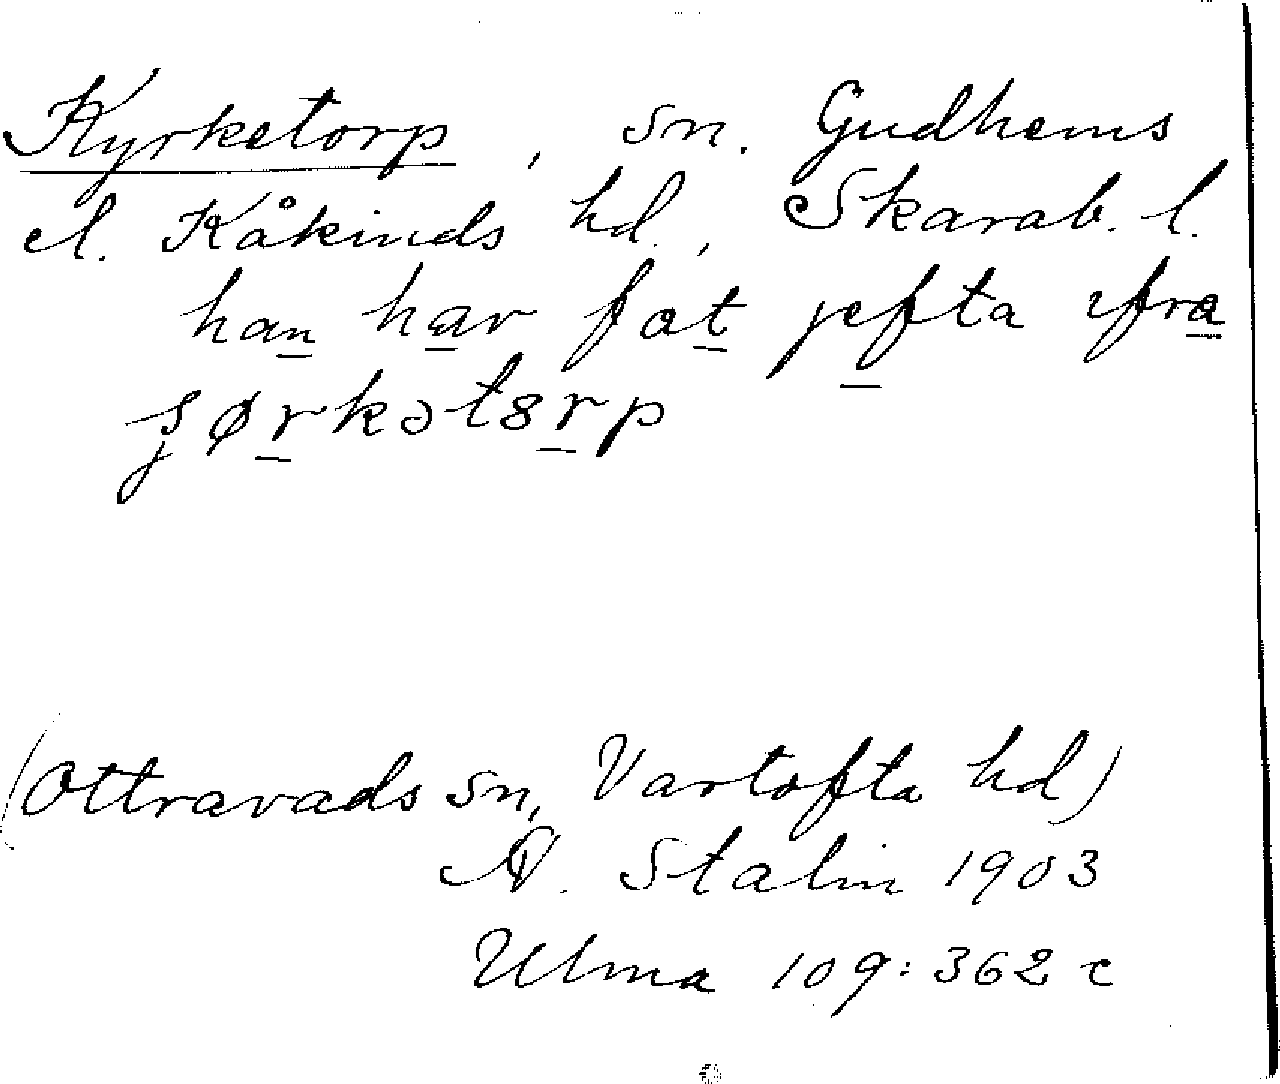 Kyrketorp, sn. Gudhems
el. Kåkinds hd., Skarab. l.
han har fat jefta ifra
ʂørkətɞrp
(Ottravads sn, Vartofta hd)
N. Stalin 1903
Ulma 109:362 c